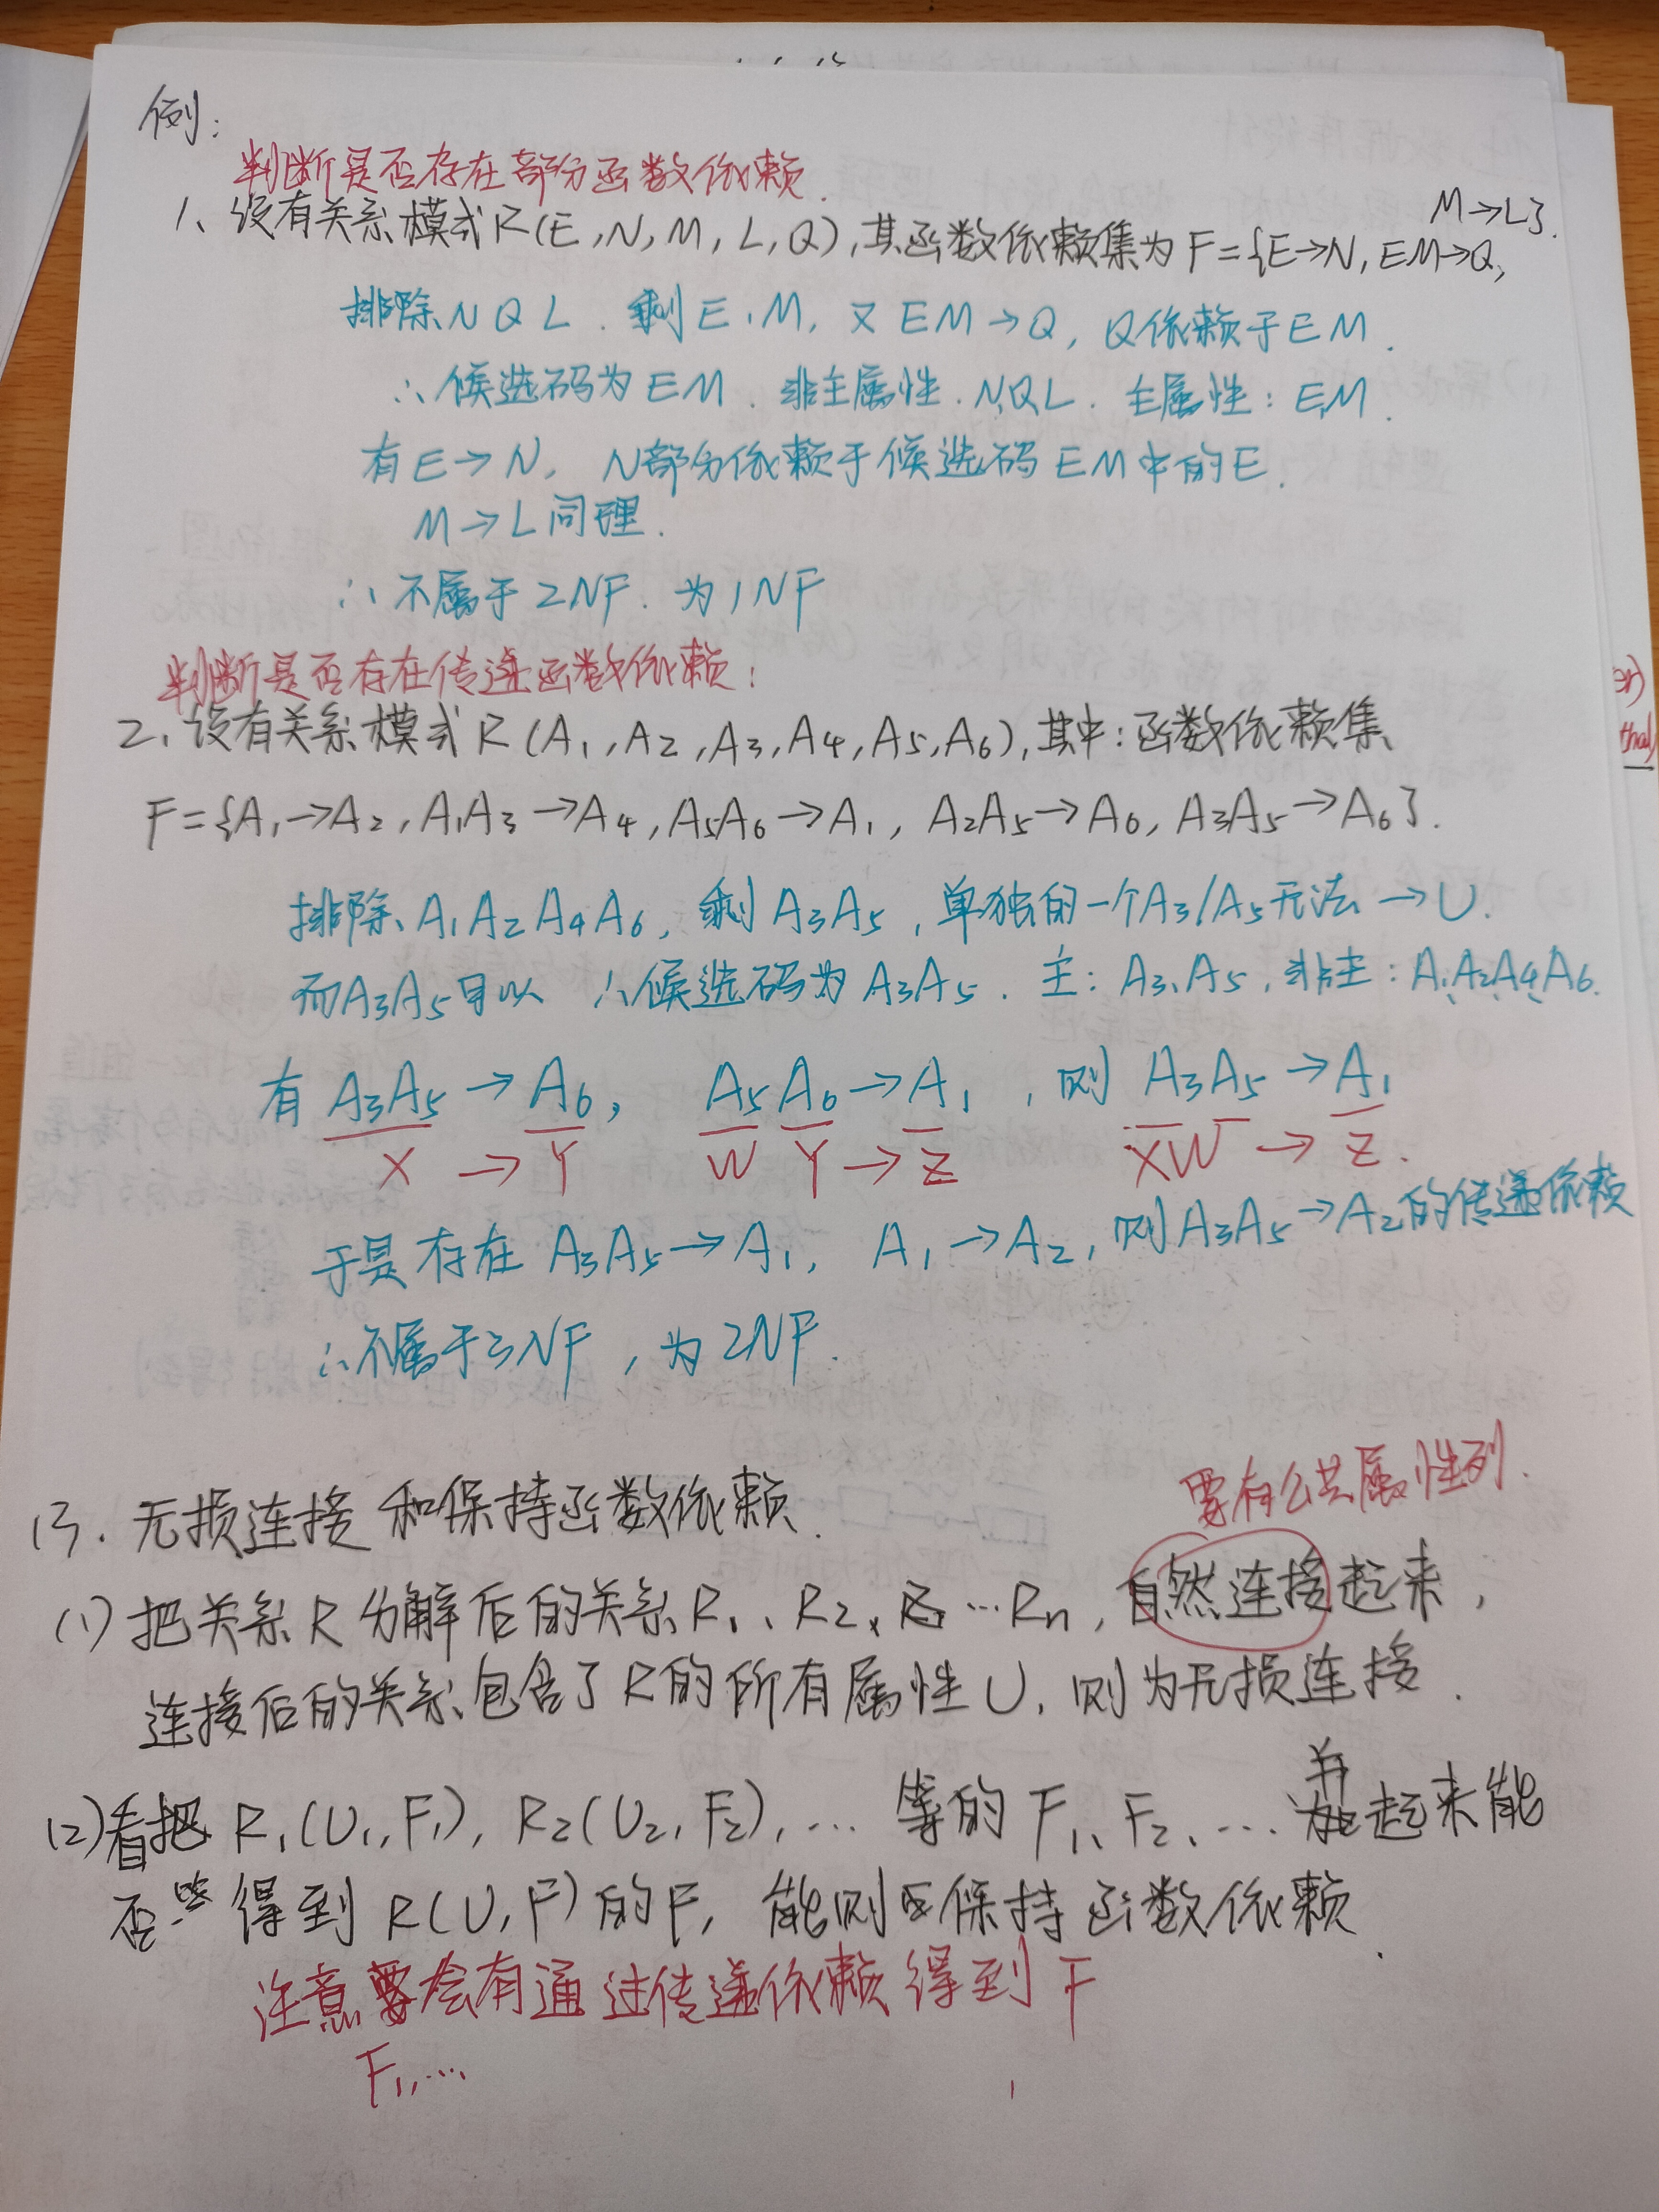 例:
判断是否存在部份函数依赖.
1、设有关系模式R(E,N,M,L,Q),其函数依赖集为F={E→N,EM→Q,
M→L}.
排除NQL.剩E,M,又EM→Q,Q依赖于EM.
∴候选码为EM.非主属性.N,Q,L.主属性:E,M.
有E→N, N部分依赖于候选码EM中的E.
M→L同理.
∴不属于2NF.为1NF
判断是否存在传递函数依赖:
2、设有关系模式R(A1,A2,A3,A4,A5,A6),其中:函数依赖集
F={A1→A2,A1A3→A4,A5A6→A1,A2A5→A6,A3A5→A6}.
排除A1A2A4A6,剩A3A5,单独的一个A3/A5无法→U.
而A3A5可以 ∴候选码为A3A5.主:A3、A5,非主:A1、A2、A4、A6.
有A3A5→A6, A5A6→A1,则A3A5→A1
X→Y WY→Z XW→Z.
于是存在A3A5→A1, A1→A2,则A3A5→A2的传递依赖
∴不属于3NF,为2NF.
要有公共属性列.
13.无损连接和保持函数依赖.
(1)把关系R分解后的关系R1、R2、…Rn,自然连接起来,
连接后的关系包含了R的所有属性U,则为无损连接.
(2)看把R1(U1,F1),R2(U2,F2),…等的F1、F2、…并起来能
否得到R(U,F)的F,能则保持函数依赖.
注意要会有通过传递依赖得到F
F1,…
er)
tha)